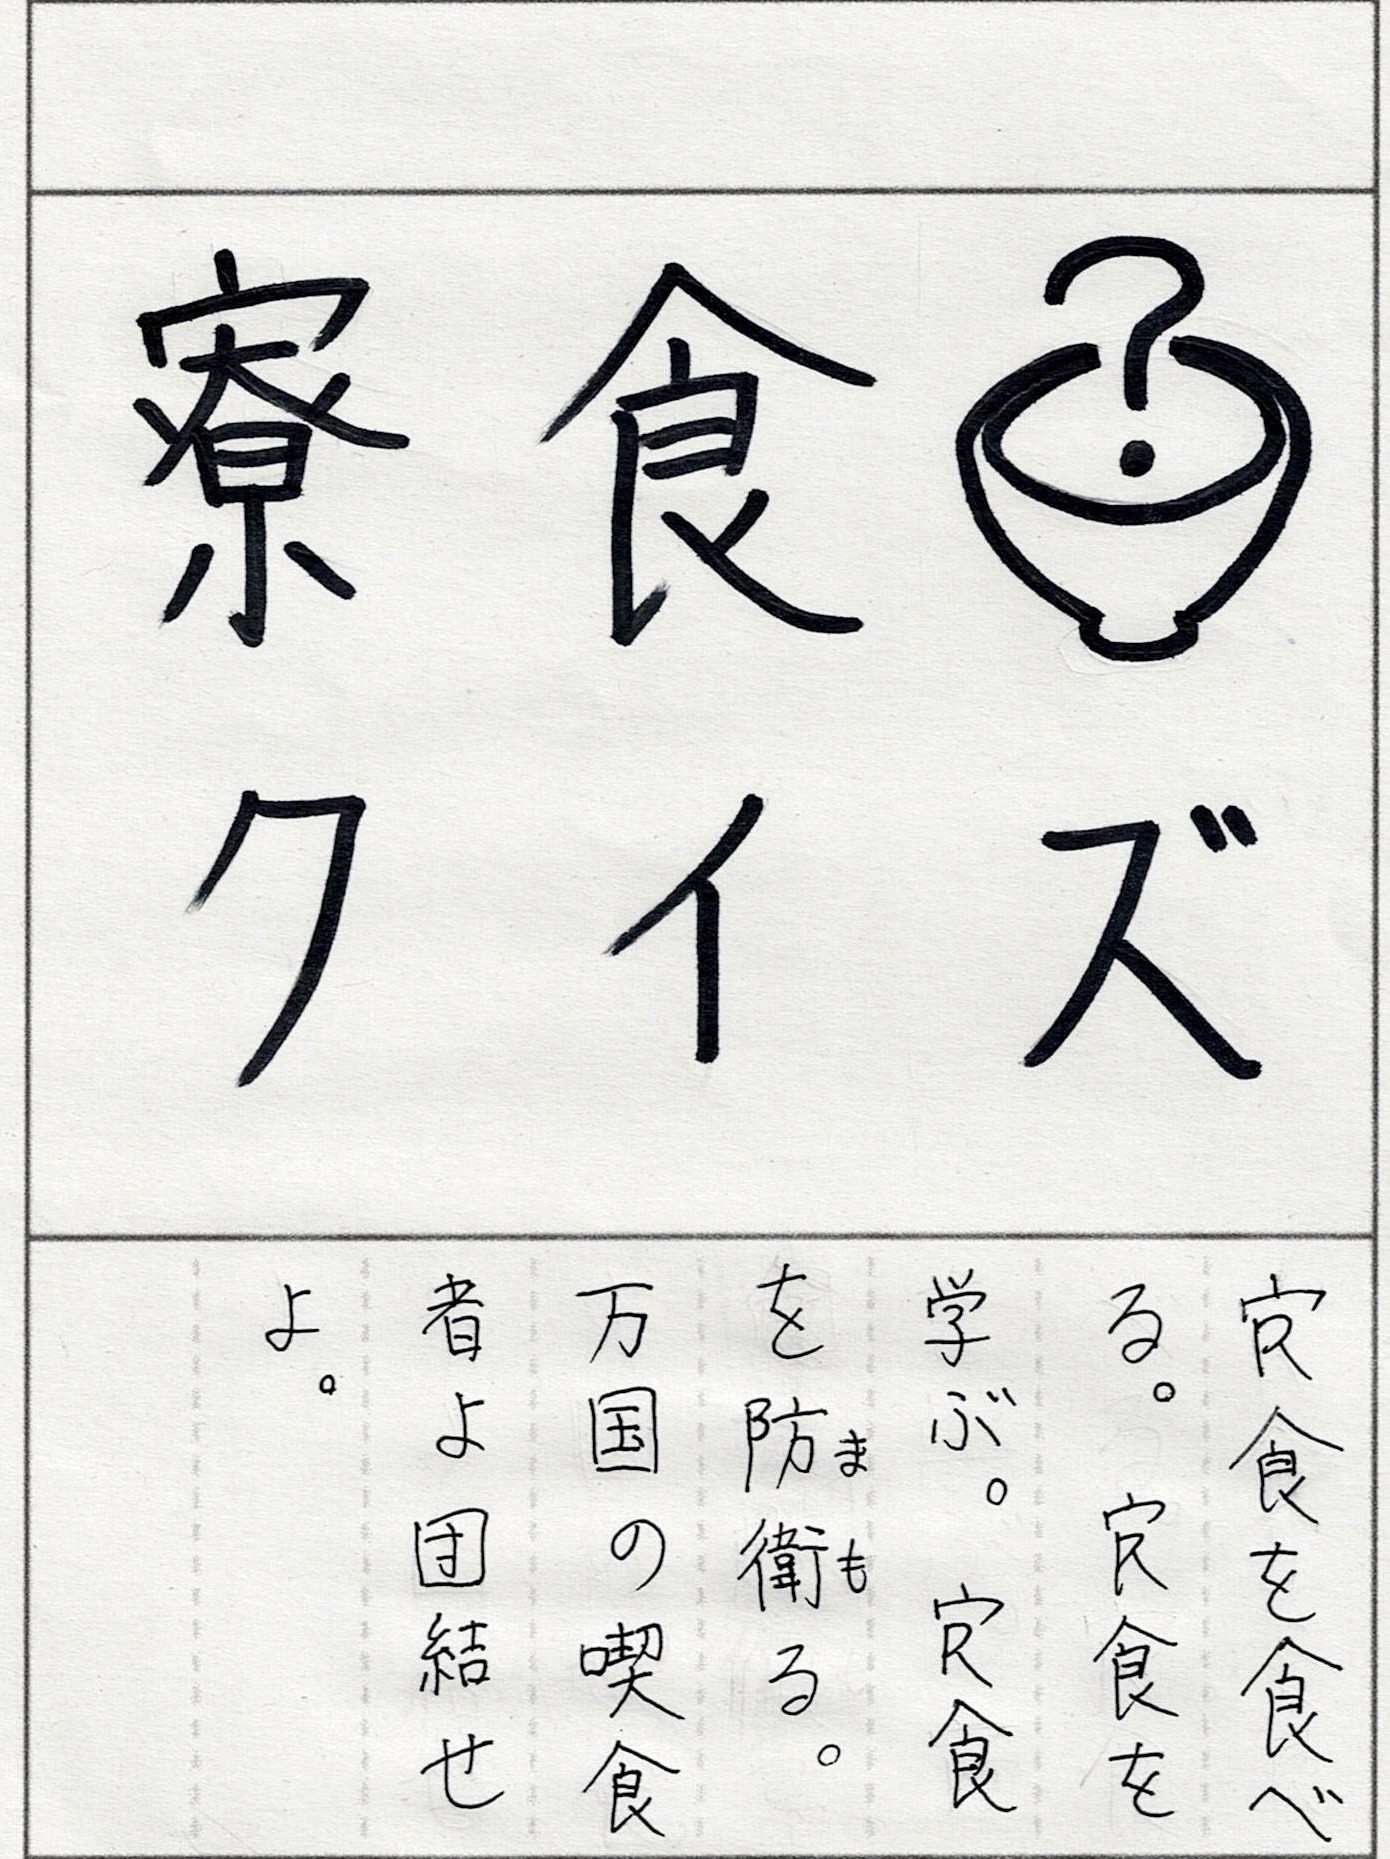 寮食
クイズ
寮食を食べ
る。寮食を
学ぶ。寮食
を防衛る。
まも
万国の喫食
者よ団結せ
よ。